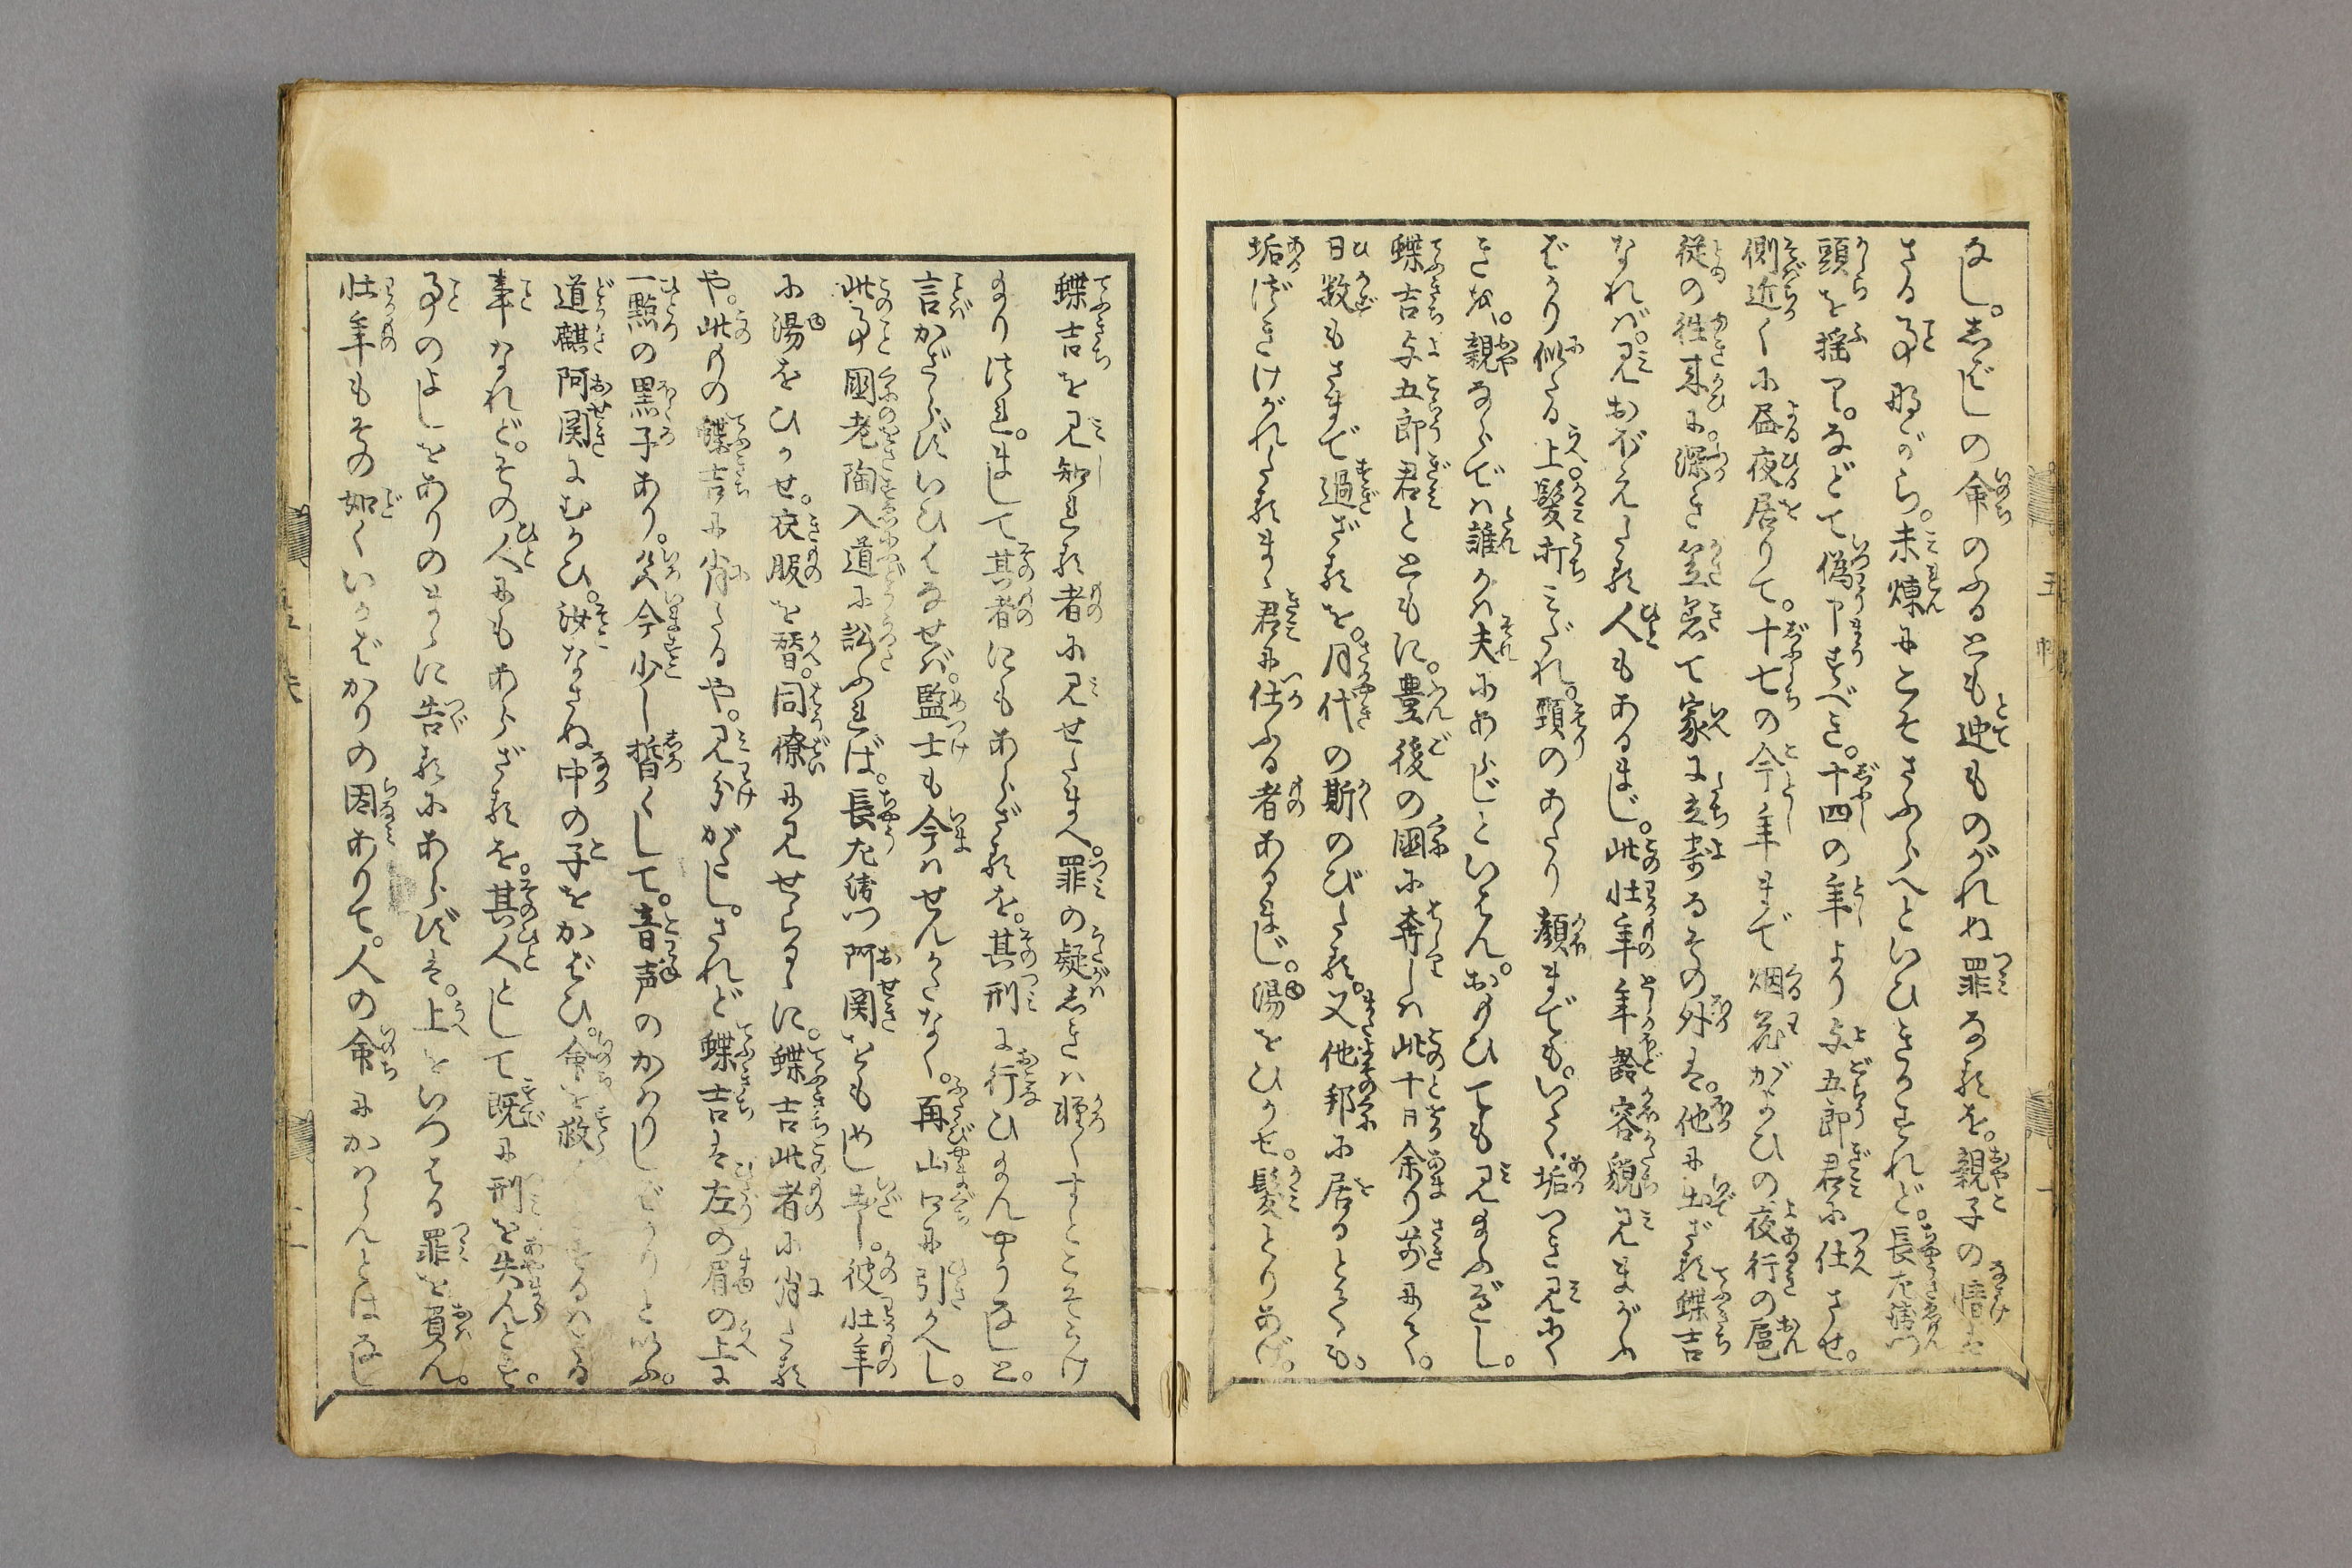 なし。志ばしの命のふるとも迚ものがれぬ罪なるを。親子の情は
さる事ながら。未練にこそさふらへといひきかすれど。長左衛門
頭を揺り。などて偽申すべき。十四の年より与五郎君に仕させ。
側近くに昼夜居りて。十七の今年まで烟花がよひの夜行の扈
従の往来に。深き笠着て家に立寄るその外は。他に出ざる蝶吉
なれば。見おぼえたる人もあるまじ。此壮年年齢容貌見まがふ
ばかり似たる上。髪打みだれ。頸のあたり顔までも。いたく垢つき見にく
きを。親ならでは誰かは夫にあらじといはん。おのひても見給ふべし。
蝶吉与五郎君とともに。豊後の国に奔しは此十日余り前にて。
日数もさまで過ざるを。月代の斯のびたる。又他邦に居るとても。
垢づきけがれたるまゝ君に仕ふる者あるまじ。湯をひかせ。髪とりあげ。
蝶吉を見知れる者に見せたまへ。罪の疑しきは軽くすとこそうけ
給りつれ。まして其者にもあらざるを。其刑に行ひ給んやうなしと。
言かざらずいひはなせば。監士も今はせんかたなく。再山口に引かへし。
此事国老陶入道に訟ふれば。長左衛門阿関をもめし出し。彼壮年
に湯をひかせ。衣服を替。同僚に見せらるゝに。蝶吉此者に肖たる
や。此ものゝ蝶吉に肖たるや。見分がたし。されど蝶吉は左の眉の上に
一點の黒子あり。色今少し皙くして。音声のかはりしばかりといふ。
道麒阿関にむかひ。汝なさぬ中の子をかばひ。命を救
事なれど。その人にもあらざるを。其人として既に刑を失んとす。
事のよしをありのまゝに告るにあらずは。上をいつはる罪を負ん。
壮年もその如くいかばかりの因ありて。人の命にかはらんとはなし